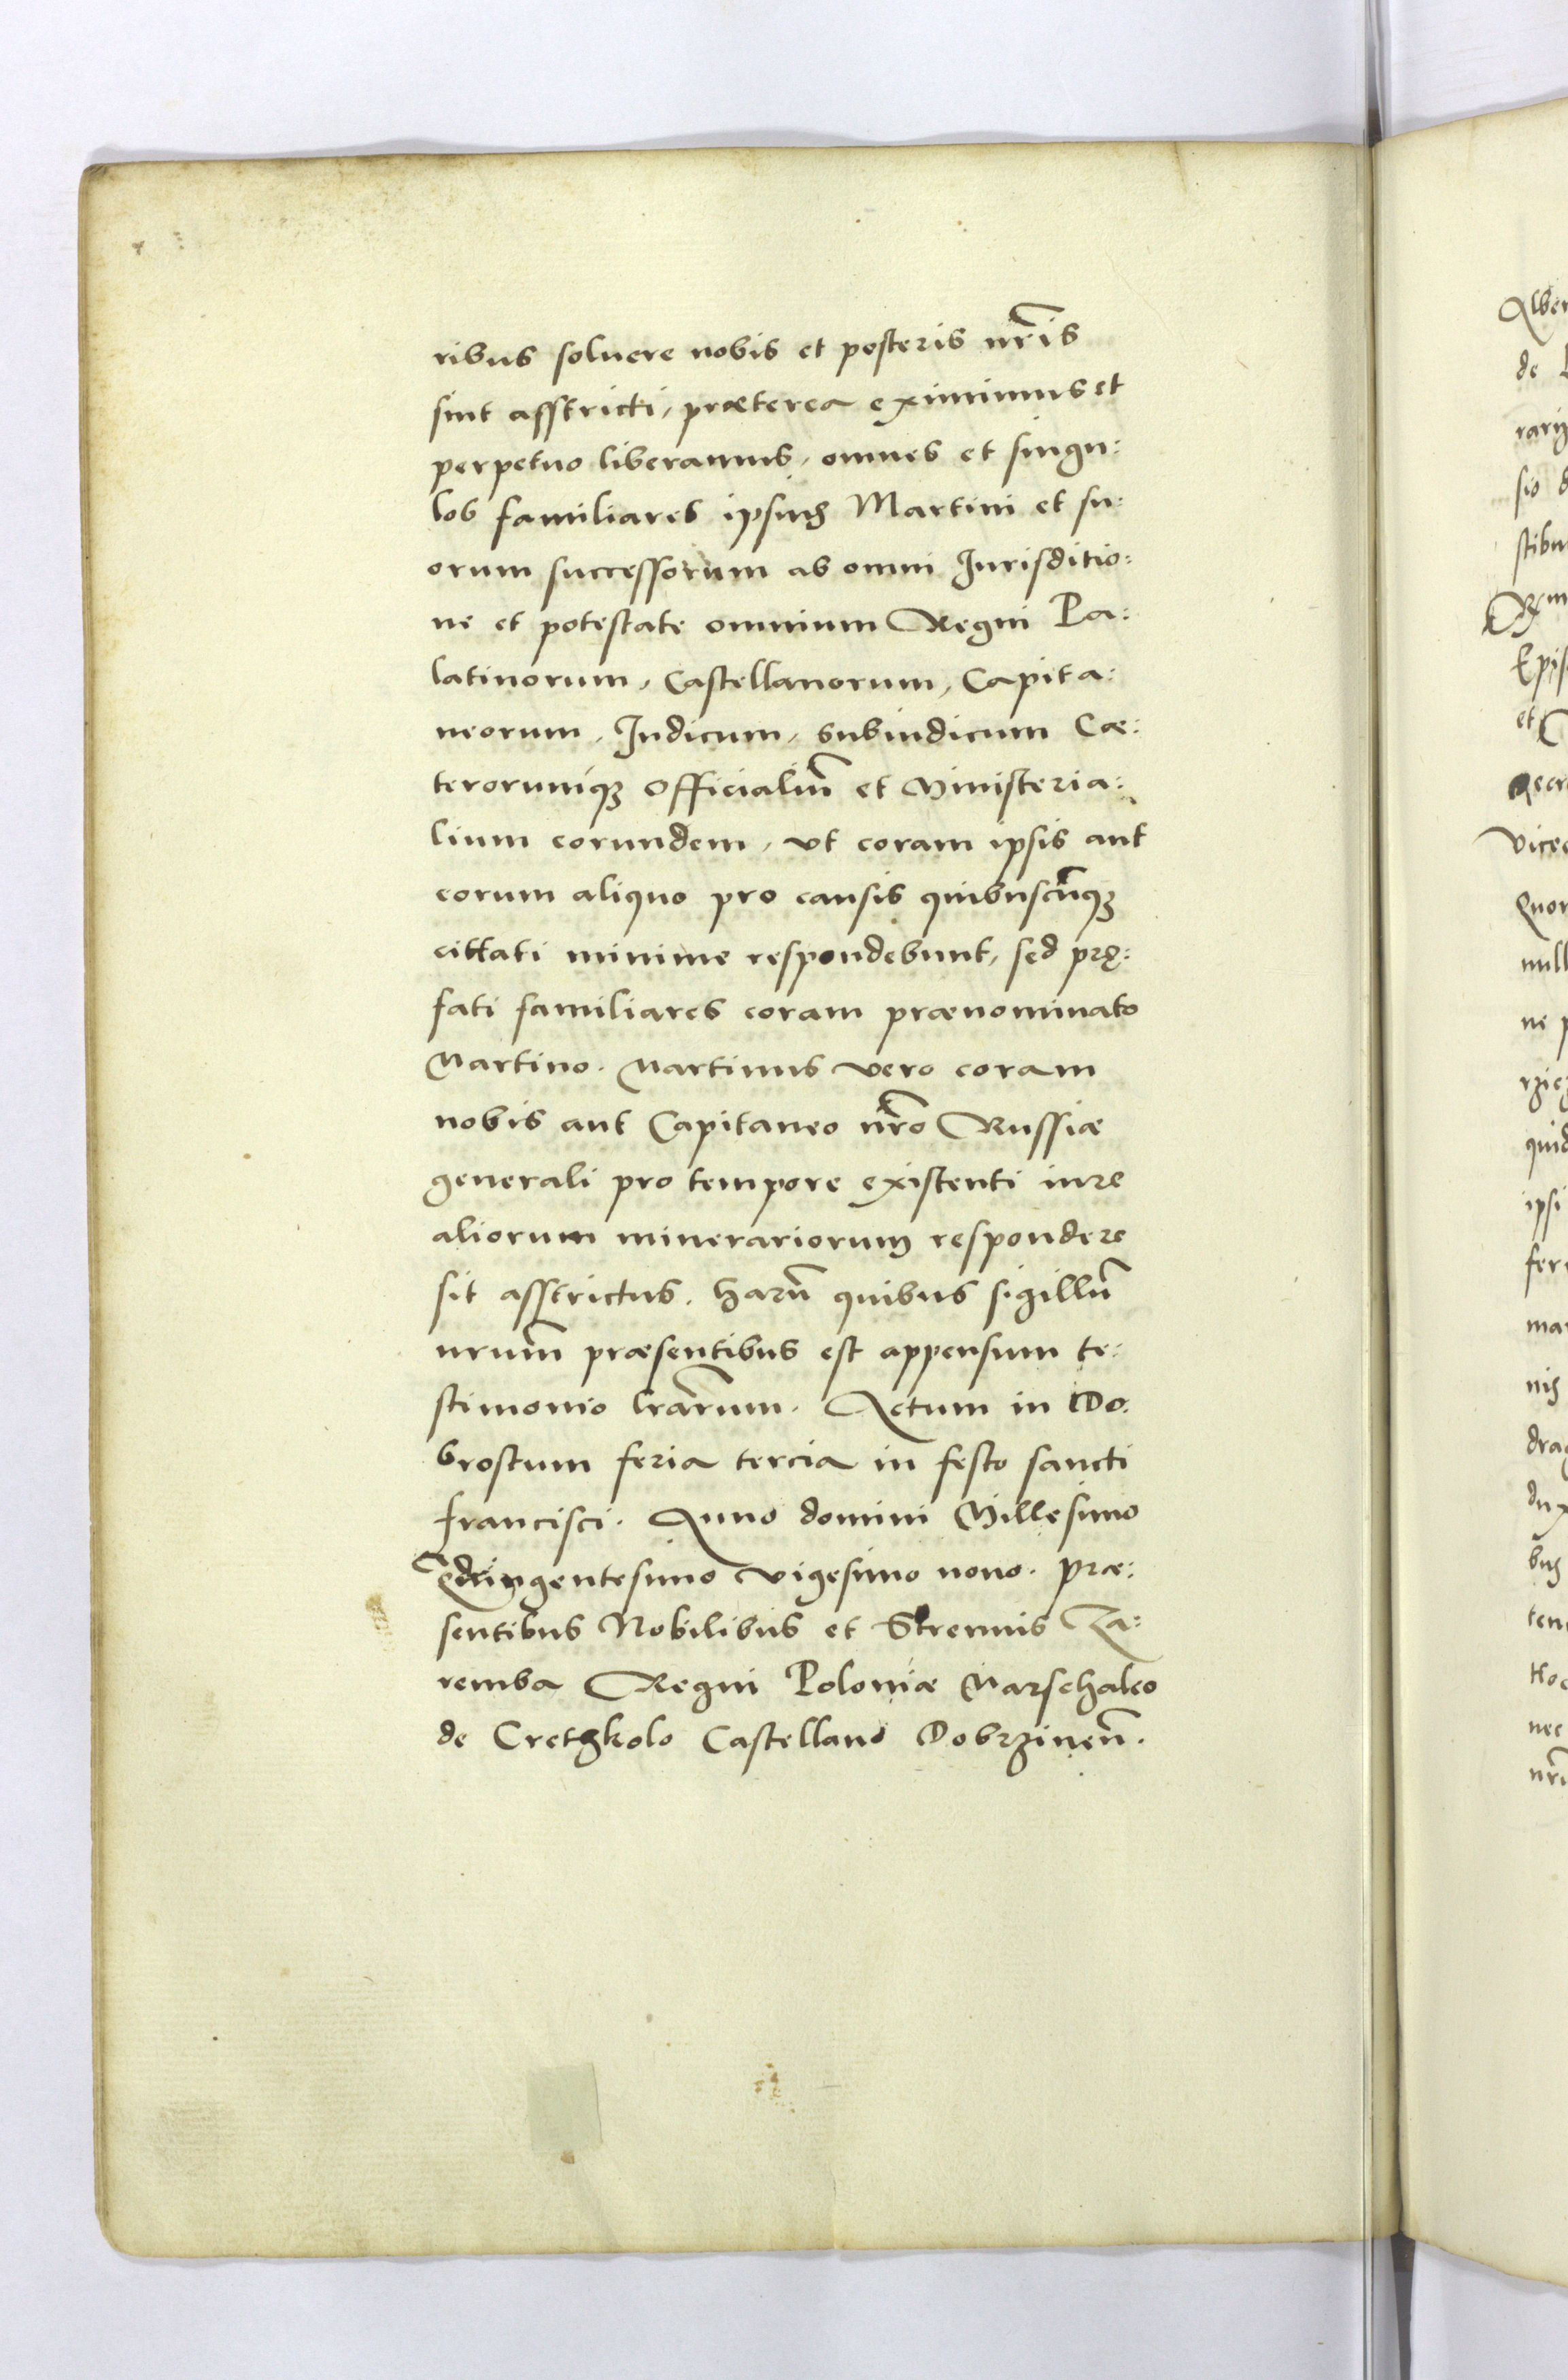 ribus soluere nobis et posteris nr̃is
sint asstricti, præterea eximimus et
perpetuo liberamus, omnes et singu:
los familiares ipsius Martini et su:
orum successorum ab omni Jurisditio:
ne et potestate omnium Regni Pa:
latinorum, Castellanorum, Capita:
neorum, Judicum, Subiudicum Cæ:
terorumq́ꝫ Officialiũ et Ministeria:
lium eorundem, vt coram ipsis aut
eorum aliquo pro causis quibuscũqꝫ
cittati minime respondebunt, sed prę:
fati familiares coram prænominato
Martino. Martinus vero coram
nobis aut Capitaneo nr̃o Russiæ
generali pro tempore existenti iure
aliorum minerariorum respondere
sit asstrictus. harũ quibus sigillũ
nrum̃ præsentibus est appensum te:
stimonio lrãrum. Actum in Do:
brostum feria tercia in festo sancti
francisci. Anno domini Millesimo
Qdringentesimo vigesimo nono. præ:
sentibus Nobilibus et Strenuis Za:
remba Regni Poloniæ Marschalco
de Cretzkolo Castellano Dobrzineñ.
Alber
de
sio
et
null
ne
ipsi